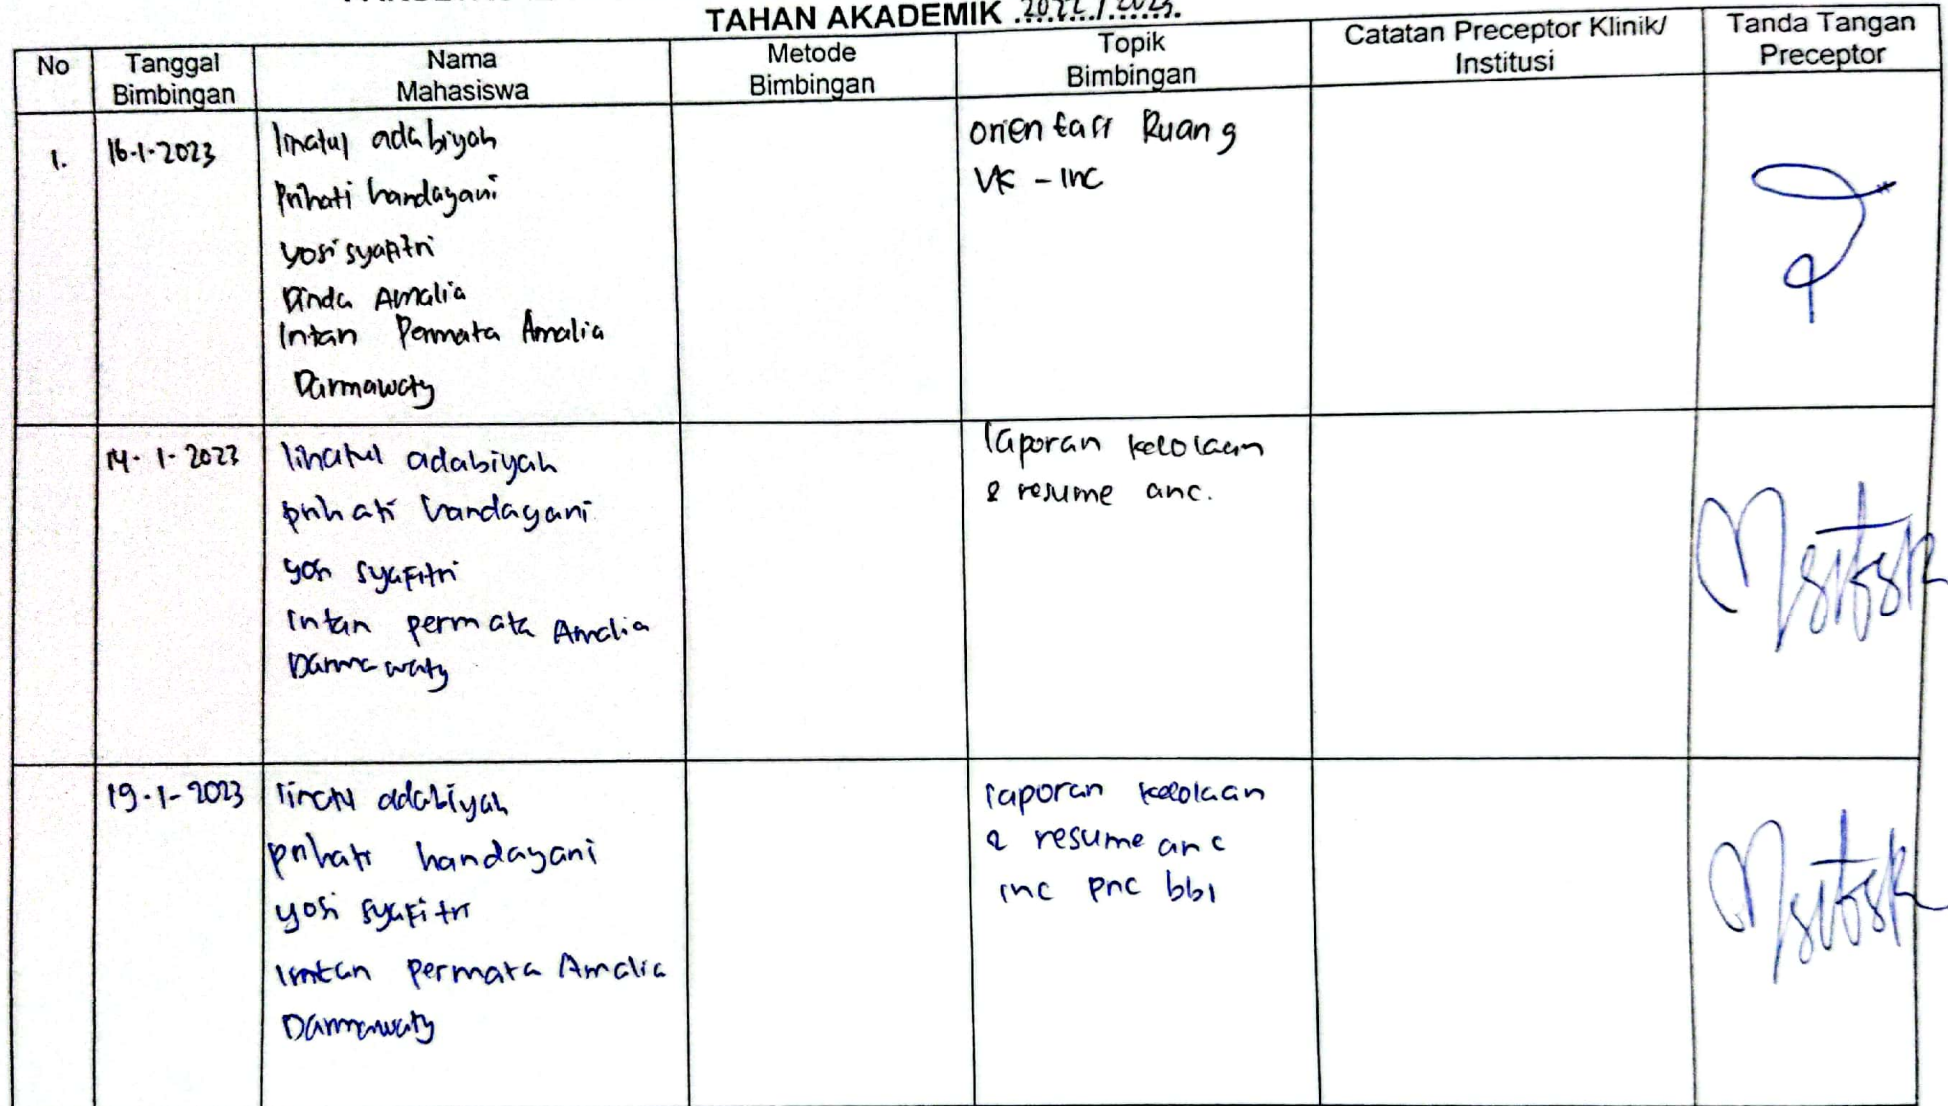 TAHAN AKADEMIK 2022/2023.
No
Tanggal
Bimbingan
Nama
Mahasiswa
Metode
Bimbingan
Topik
Bimbingan
Catatan Preceptor Klinik/
Institusi
Tanda Tangan
Preceptor
1.
16-1-2023
linatul adabiyah
Prihati handayani
yosi syafitri
Dinda Amalia
Intan Permata Amalia
Darmawaty
orientasi Ruang
VK - inc
1-2023
linatul adabiyah
prihati handayani
yosi syafitri
intan permata Amalia
Darmawaty
laporan kelolaan
& resume anc.
19-1-2023
linatul adabiyah
prihati handayani
yosi syafitri
intan permata Amalia
Darmawaty
laporan kelolaan
& resume anc
inc pnc bbl